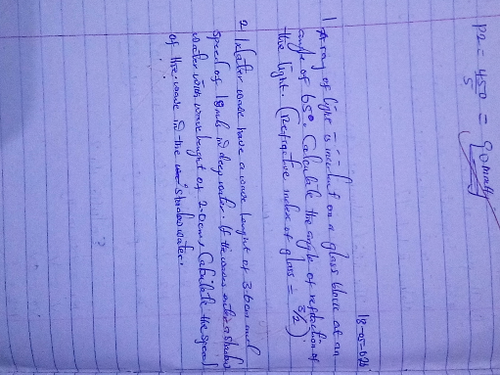 P2 = 450/5 = 90
18-05-026
1 A ray of light is incident on a glass block at an
angle of 65°. Calculate the angle of refraction of
the light. (Refractive index of glass = 3/2)
2 Water wave have a wave lenght of 3.6cm and
speed of 18m/s in deep water. If the waves enter a
water with wavelenght of 2.0cm, Calculate the speed
of the wave in the water.